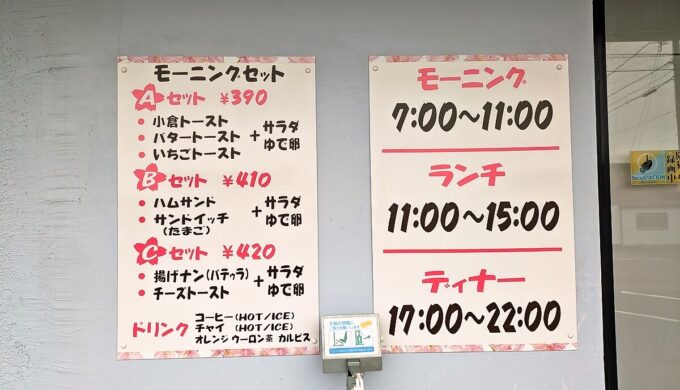 モーニングセット
Aセット ¥390
● 小倉トースト
● バタートースト
● いちごトースト
+ サラダ
ゆで卵
Bセット ¥410
● ハムサンド
● サンドイッチ
(たまご)
+ サラダ
ゆで卵
Cセット ¥420
● 揚げナン(バテゥラ)
● チーズトースト
+ サラダ
ゆで卵
ドリンク
コーヒー(HOT/ICE)
チャイ (HOT/ICE)
オレンジ ウーロン茶 カルピス
モーニング
7:00〜11:00
ランチ
11:00〜15:00
ディナー
17:00〜22:00